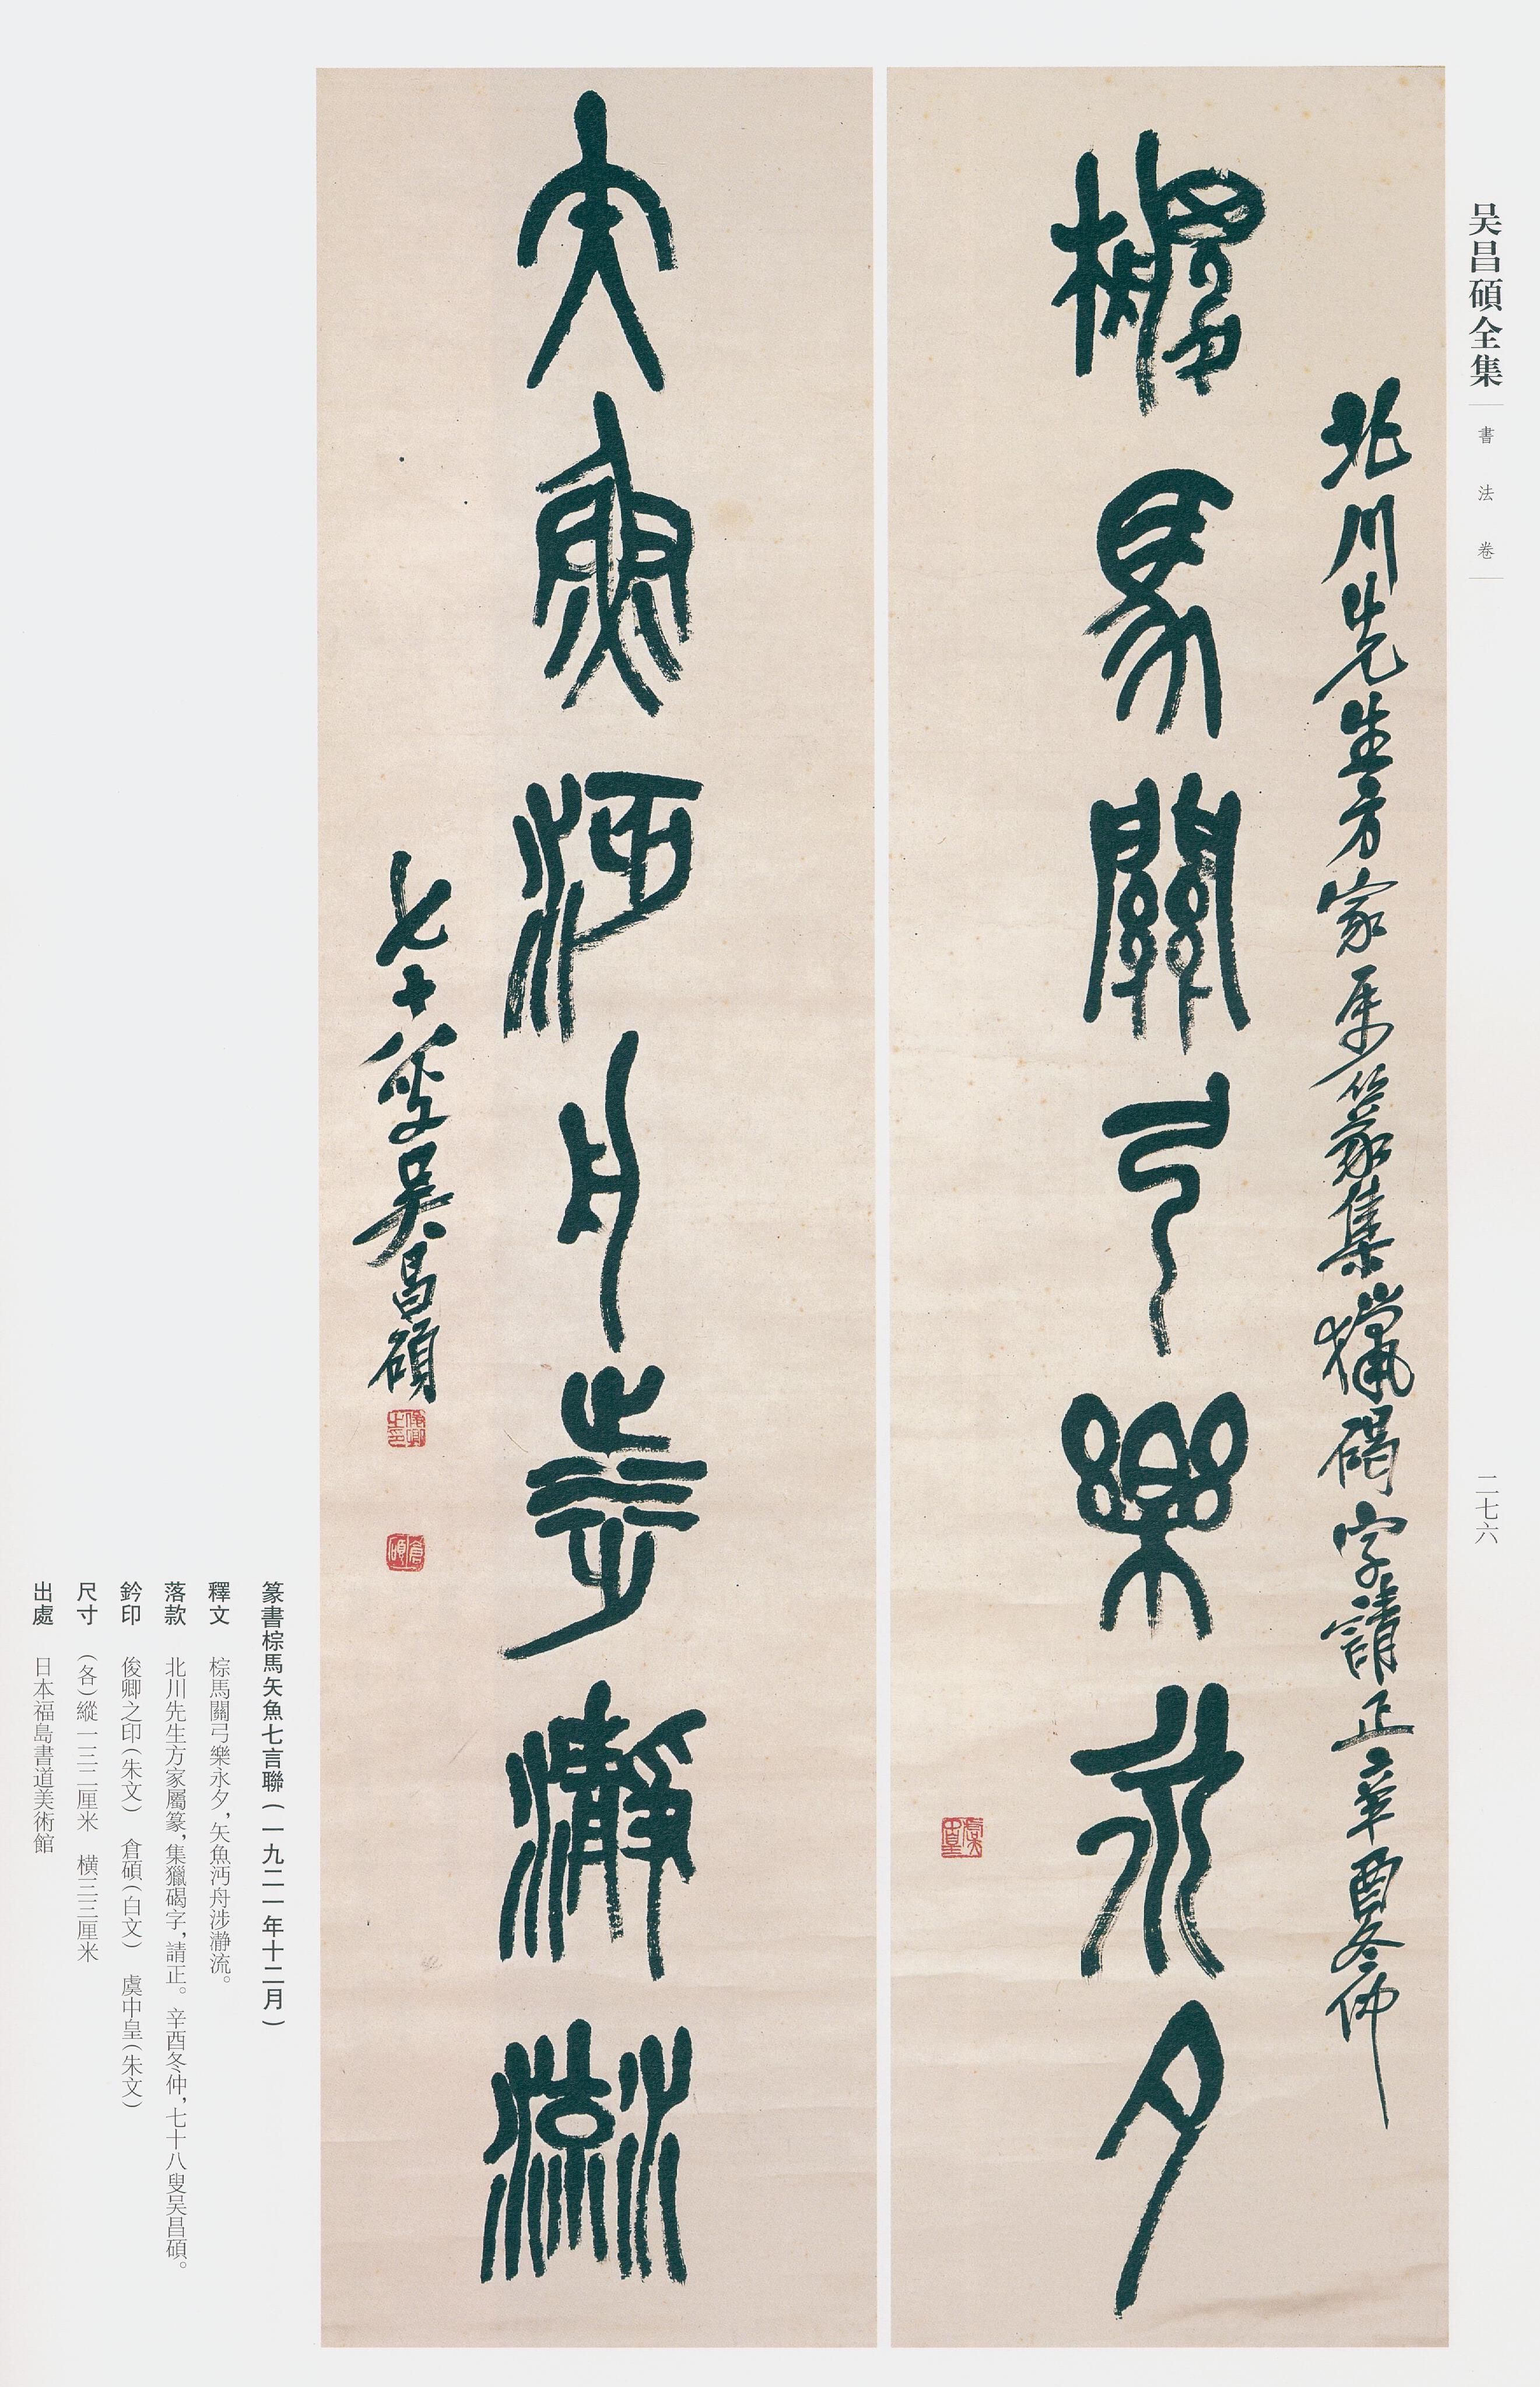 吴昌碩全集
書法卷
二七六
北川先生方家属篆集獵碣字請正辛酉冬仲
棕馬關弓樂永夕
矢魚沔舟涉瀞流
七十八叟吴昌碩
俊卿之印
倉碩
虞中皇
篆書棕馬矢魚七言聯(一九二一年十二月)
釋文　棕馬關弓樂永夕,矢魚沔舟涉瀞流。
落款　北川先生方家屬篆,集獵碣字,請正。辛酉冬仲,七十八叟吴昌碩。
鈐印　俊卿之印(朱文)　倉碩(白文)　虞中皇(朱文)
尺寸　(各)縱一三二厘米　横三三厘米
出處　日本福島書道美術館